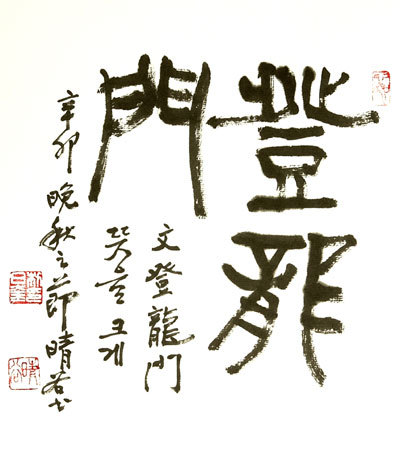 登龍
門
文登龍門
크게
辛卯晩秋之節晴